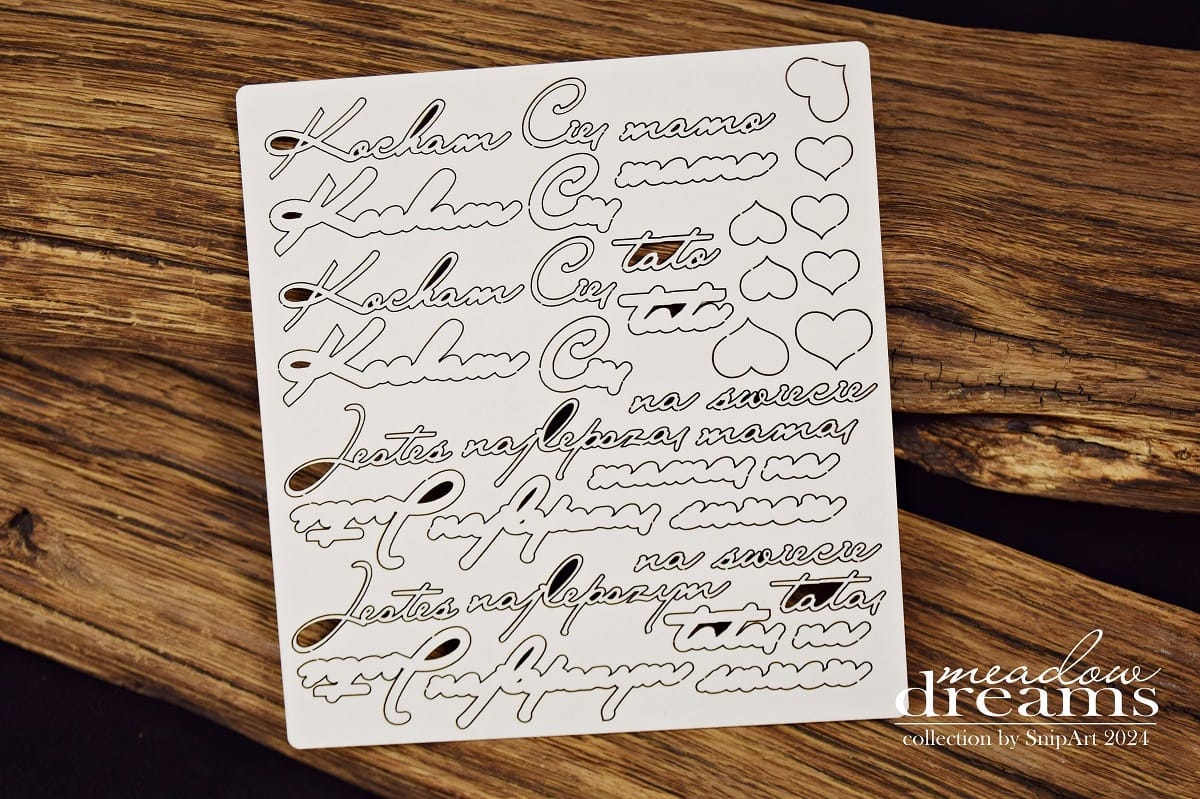 Kocham Cię mamo
mamo
Kocham Cię
tato
Kocham Cię
tato
Kocham Cię
na swiecie
Jestes najlepszą mamą
mamą na
Jestes najlepszą swiecie
na swiecie
Jestes najlepszym tatą
tatą na
Jestes najlepszym swiecie
meadow
dreams
collection by SnipArt 2024